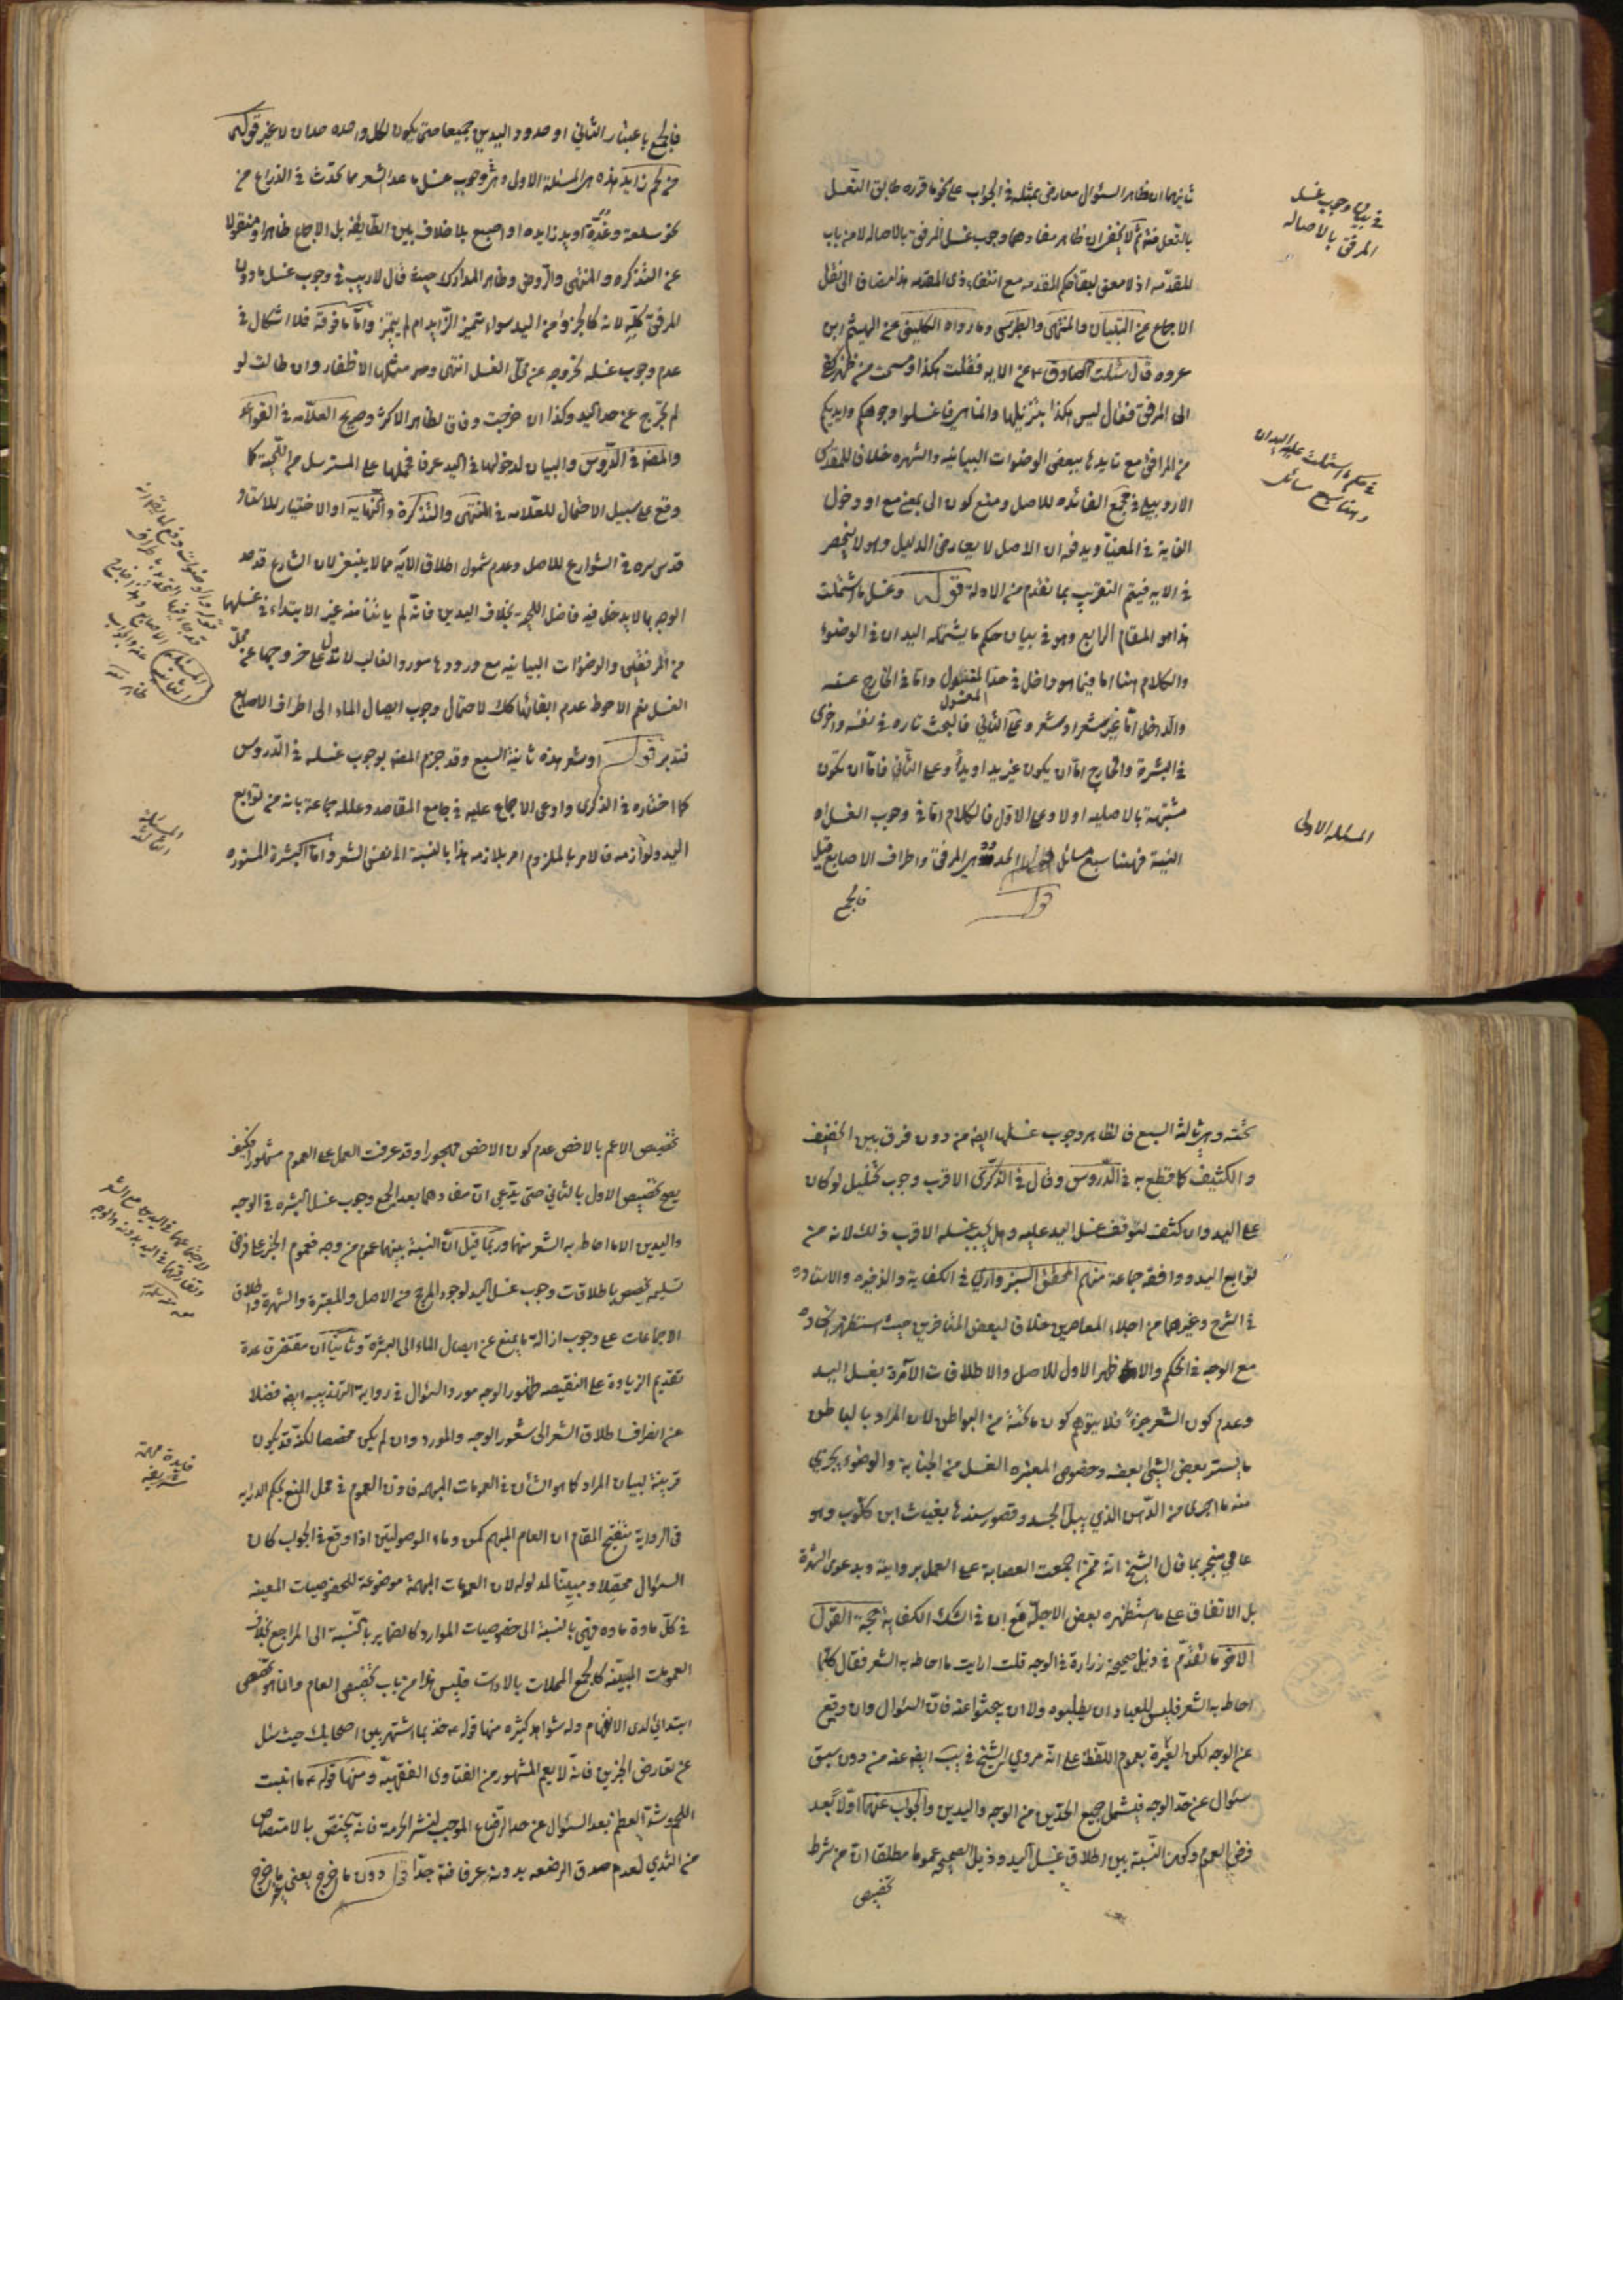 ثانيهما ان ظاهر السئوال معارض بمثله في الجواب على نحو ما قرره طابق النعل
بالنعل ثم لا يخفى ان ظاهر مفادهما وجوب غسل المرفق بالاصاله لا من باب
المقدمه اذ لا معنى لبقاء حكم المقدمه مع انتفاء ذى المقدمه هذا مضافا الى نقل
الاجماع عن التبيان والمنتهى والطبرسى وما رواه الكلينى عن الهيثم ابن
عروه قال سئلت الصادق ع عن الايه فقلت هكذا ومسحت من ظهر كفى
الى المرفق فقال ليس هكذا تنزيلها وانما هى فاغسلوا وجوهكم وايديكم
من المرافق مع تايدها ببعض الوضوات البيانيه والشهره خلافا للمقدس
الاردبيلى في مجمع الفائده للاصل ومنع كون الى بمعنى مع او دخول
الغاية في المغيا ويدفعه ان الاصل لا يعارض الدليل وهو لا ينحصر
في الايه فيتم التقريب بما تقدم من الادلة قوله وغسل ما اشتملت
هذا هو المقام الرابع وهو في بيان حكم ما يشتمله اليدان في الوضوء
والكلام هنا اما فيما هو داخل في حد المغسول واما في الخارج عنه
والداخل اما غير شعر او شعر وعلى الثاني فالبحث تاره في نفسه واخرى
في البشرة والخارج اما ان يكون غير يد او يدا وعلى الثاني فاما ان تكون
مشتبهة بالاصليه او لا وعلى الاول فالكلام اما في وجوب الغسل او
النية فههنا سبع مسائل قوله الحدود هى المرفق واطراف الاصابع قيل
فالجمع
في بيان وجوب غسل
المرفق بالاصاله
في حكم ما اشتملت عليه اليدان
وهنا سبع مسائل
المسئله الاولى
فالجمع باعتبار الثاني او حدود اليدين جميعا حتى يكون لكل واحده حدان لا غير قوله
من لحم زايد هذه هى المسئلة الاولى وهى وجوب غسل ما عدا الشعر مما يحدث في الذراع من
نحو سلعة وغدة او يد زايده او اصبع بلا خلاف بين الطايفه بل الاجماع ظاهرا ومنقولا
عن التذكره والمنتهى والروض وظاهر المدارك حيث قال لا ريب في وجوب غسل ما دون
المرفق كله لانه كالجزو من اليد سواء تميز الزايد ام لم يتميز واما ما فوقه فلا اشكال في
عدم وجوب غسله لخروجه عن محل الغسل انتهى ومثلها الاظفار وان طالت لو
لم تخرج عن حد اليد وكذا ان خرجت وفاقا لظاهر الاكثر وصريح العلامه في القواعد
والمصنف في الدروس والبيان لدخولها في اليد عرفا فحملها على المسترسل من اللحية كما
وقع على سبيل الاحتمال للعلامه في المنتهى والتذكرة والنهايه او الاختيار للاستاد
قدس سره في الشوارع للاصل وعدم شمول اطلاق الآية مما لا ينبغى لان الشارع قد حد
الوجه بما لا يدخل فيه فاضل اللحية بخلاف اليدين فانه لم ياتنا منه غير الابتداء في غسلهما
من المرفقين والوضوات البيانيه مع ورودها مورد الغالب لا تدل على خروجها عن محل
الغسل نعم الاحوط عدم ابقائها كك لاحتمال وجوب ايصال الماء الى اطراف الاصابع
فتدبر قوله او شعر هذه ثانية السبع وقد جزم المصنف بوجوب غسله في الدروس
كما اختاره في الذكرى وادعى الاجماع عليه في جامع المقاصد وعلله جماعة بانه من توابع
اليد ولوازمه فالامر بالملزوم امر بلازمه هذا بالنسبة الى نفس الشعر واما البشرة المستوره
المسئلة
الثانية
المسئلة
الثالثة
تحته وهى ثالثة السبع فالظاهر وجوب غسلها ايضا من دون فرق بين الخفيف
والكثيف كما قطع به في الدروس وقال في الذكرى الاقرب وجوب تخليل لو كان
على اليد وان كثف لتوقف غسل اليد عليه وهل يجب غسله الاقرب ذلك لانه من
توابع اليد ووافقه جماعة منهم المحقق السبزوارى في الكفاية والذخيره والاستاد
في الشرح وغيرهما من اجلاء المعاصرين خلافا لبعض المتاخرين حيث استظهر اتحاده
مع الوجه في الحكم والاظهر الاول للاصل والاطلاقات الآمرة بغسل اليد
وعدم كون الشعر جزءً فلا يتوهم كون ما تحته من البواطن لان المراد بالباطن
ما يستر بعض الشئ بعضه وخصوص المعتبره الغسل من الجنابة والوضوء يجزى
منه ما اجزى من الدهن الذي يبل الجسد وقصور سندها بغياث ابن كلوب وهو
عامى منجبر بما قال الشيخ انه ممن اجمعت العصابة على العمل بروايته وبدعوى الشهرة
بل الاتفاق على ما استظهره بعض الاجلة مع ان في تلك الكفاية حجة القول
الاخر ما تقدم في ذيل صحيحة زرارة في الوجه قلت ارايت ما احاط به الشعر فقال كلما
احاط به الشعر فليس للعباد ان يطلبوه ولا ان يبحثوا عنه فان السئوال وان وقع
عن الوجه لكن العبرة بعموم اللفظ على انه مروى الشيخ في يب ايضا عنه من دون سبق
سئوال عن حد الوجه فيشمل جميع الحدين من الوجه واليدين والجواب عنهما اولا بعد
فرض العموم وكون النسبة بين اطلاق غسل اليد وذيل الصحيح عموما مطلقا ان من شرط
تخصيص
تخصيص الاعم بالاخص عدم كون الاخص مهجورا وقد عرفت العمل على العموم مشهورا فكيف
يصح تخصيص الاول بالثاني حتى يدعى ان مفادهما بعد الجمع وجوب غسل البشره في الوجه
واليدين الا ما احاط به الشعر منها وربما قيل ان النسبة بينهما عموم من وجه فعموم الخبر على فرض
تسليمه يخصص باطلاقات وجوب غسل اليد لوجود المرجح من الاصل والمعتبرة والشهرة واطلاق
الاجماعات على وجوب ازالة ما يمنع عن ايصال الماء الى البشرة وثانيا ان مقتضى قاعدة
تقديم الزيادة على النقيصه ظهور الوجه مورد السئوال في رواية التهذيب ايضا فضلا
عن انصراف اطلاق الشعر الى شعور الوجه والمورد وان لم يكن مخصصا لكنه قد يكون
قرينة لبيان المراد كما هو الشان في العمومات المبهمه فان العموم في محل المنع بحكم الدرايه
فى الرواية تنقيح المقام ان العام المبهم كمن وماء الموصولتين اذا وقع في الجواب كان
السئوال محصلا ومبينا لمدلوله لان العمومات المبهمة موضوعة للخصوصيات المعينه
في كل مادة ماده فهى بالنسبة الى خصوصيات الموارد كالضماير بالنسبة الى المراجع بخلاف
العمومات المبينه كالجمع المحلات بالادات فليس هذا من باب تخصيص العام وانما هو تخصص
ابتدائى لدى الافهام وله شواهد كثيره منها قوله ع خذ بما اشتهر بين اصحابك حيث سئل
عن تعارض الخبرين فانه لا يعم المشهور من الفتاوى الفقهية ومنها قوله ع ما انبت
اللحم وشد العظم بعد السئوال عن حد الرضاع الموجب لنشر الحرمة فانه يختص بالامتصاص
من الثدي لعدم صدق الرضعه بدونه عرفا فته جدا قوله دون ما خرج يعنى ما خرج
فايدة مهمة
شريفه